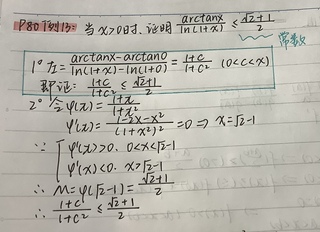 P80 例13: 当x>0时, 证明 arctanx/ln(1+x) ≤ (√2+1)/2
常数
1° 左= (arctanx-arctan0)/(ln(1+x)-ln(1+0)) = (1+c)/(1+c²) (0<c<x)
即证: (1+c)/(1+c²) ≤ (√2+1)/2
2° 令φ(x)= (1+x)/(1+x²)
φ'(x)= (1-2x-x²)/(1+x²)² =0 ⇒ x=√2-1
∵ { φ'(x)>0. 0<x<√2-1
φ'(x)<0. x>√2-1
∴ M=φ(√2-1)= (√2+1)/2
∴ (1+c)/(1+c²) ≤ (√2+1)/2